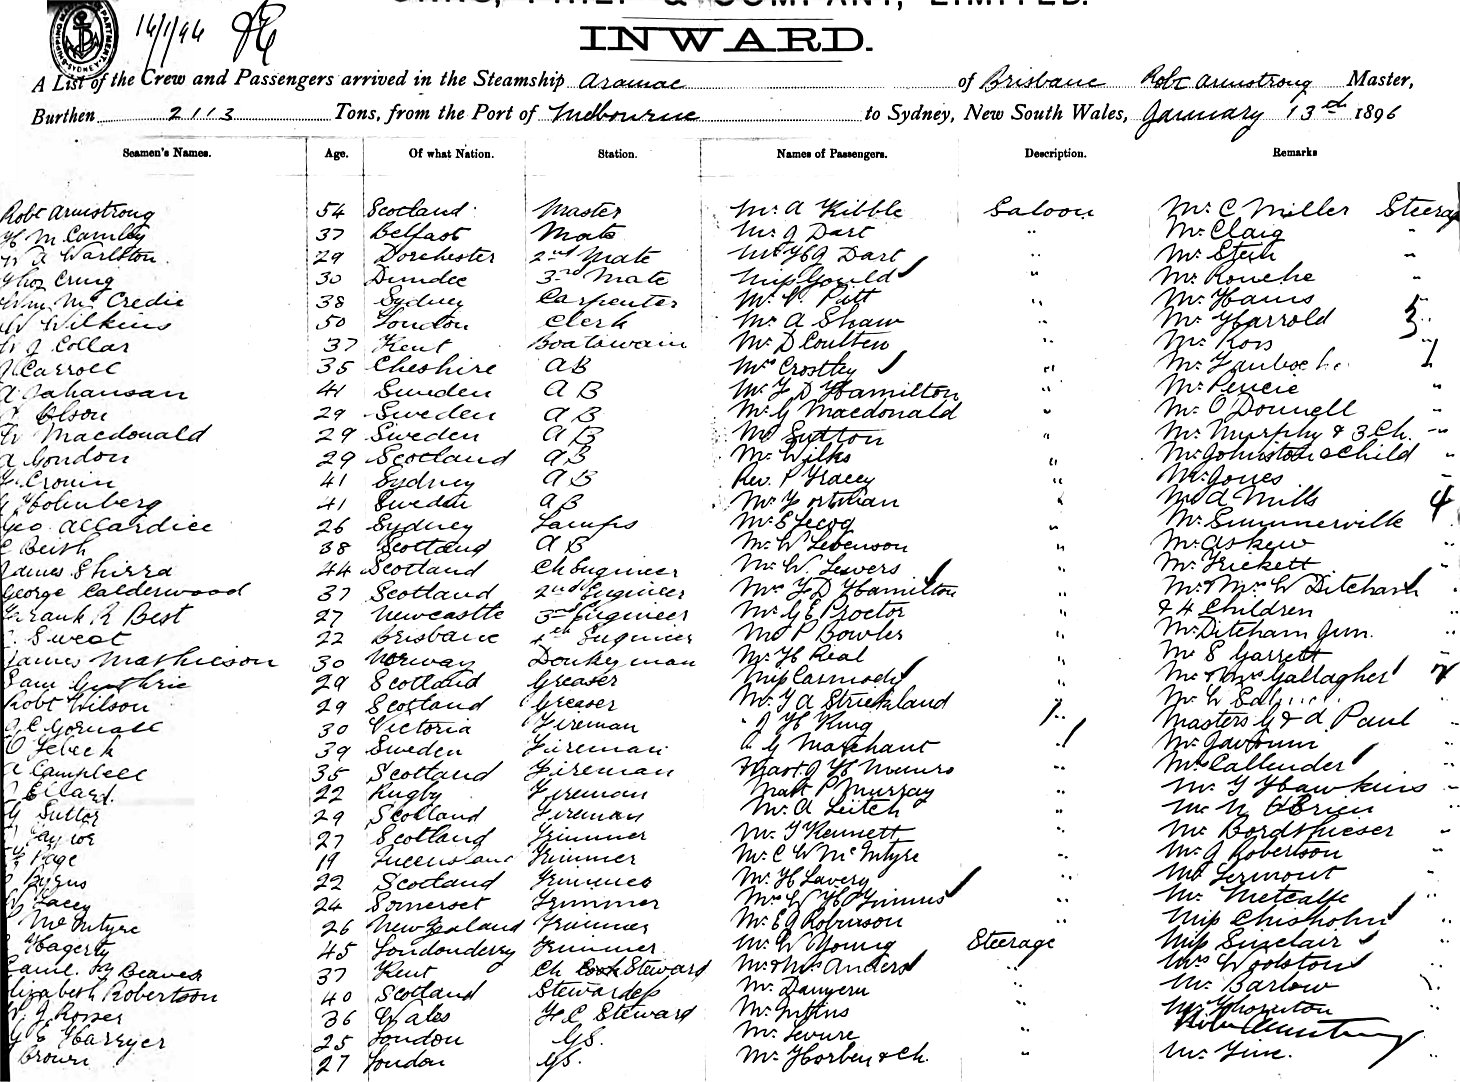 14/1/96
INWARD.
A List of the Crew and Passengers arrived in the Steamship Aramac of Brisbane Robt Armstrong Master,
Burthen 2113 Tons, from the Port of Melbourne to Sydney, New South Wales, January 13th 1896
Seamen's Names. Age. Of what Nation. Station. Names of Passengers. Description. Remarks
Robt Armstrong 54 Scotland Master Mr A Kibble Saloon Mr C Miller Steerag
37 Belfast Mate Mr J Dart " Mr Claig "
29 Dorchester 2nd Mate Dart " Mr Stein "
30 Dundee 3rd Mate Miss Gould " Mr Rouche "
Wm Mc Credie 38 Sydney Carpenter Mr Pitt " Mr Hains "
W Wilkins 50 London Clerk Mr A Shaw " Mr Harrold 5 "
J Collar 37 Kent Boatswain Mr D Coulten " Mr Ross
J Carroll 35 Cheshire AB Mrs Crostley " Mr 1
A Johansan 41 Sweden AB Mr F D Hamilton " Mr Pencie "
Olson 29 Sweden AB Mr G Macdonald " Mr O Donnell "
Macdonald 29 Sweden AB Mr Sutton " Mr Murphy & 3 Ch. "
A Gordon 29 Scotland AB Mr Wilks " Mr Johnston & Child "
Cronin 41 Sydney AB Rev. P Tracey " Mr Jones "
Holmberg 41 Sweden AB Mr Fortman " Mr A Mills 4
Geo Allardice 26 Sydney Lamps Mr E Lecog " Mr Summerville "
Beith 38 Scotland AB Mr W Levenson " Mr Askew "
James Shirra 44 Scotland Ch Engineer Mr W. Lewers " Mr Trickett "
George Calderwood 37 Scotland 2nd Engineer Mrs F D Hamilton " Mr & Mrs W Ditcham "
Frank R Best 27 Newcastle 3rd Engineer Mr G E Proctor " & 4 Children
Sweet 22 Brisbane 4th Engineer Mr P Bowler " Mr Ditcham Jun. "
James Mathieson 30 Norway Donkeyman Mr H Real " Mr S Garrett "
Sam Guthrie 29 Scotland Greaser Miss Carmody " Mr & Mrs Gallagher
Robt Wilson 29 Scotland Greaser Mr F A Strickland Mr W
30 Victoria Fireman J H King Masters G & A Paul "
O Lebeck 39 Sweden Fireman G Marchant Mr "
A Campbell 35 Scotland Fireman Mast. J H Munro " Mr Callender "
Ellard. 22 Rugby Fireman Mast P Murray " Mr G Hawkins "
G Suttor 29 Scotland Fireman Mr A Leitch " Mr N O'Brien "
Taylor 27 Scotland Trimmer Mr T Kennett " Mr Bordthieser "
Page 19 Queensland Trimmer Mr C W McIntyre " Mr J Robertson "
22 Scotland Trimmer Mr H Lavery " Mr Lermont "
Lacey 24 Somerset Trimmer Mrs W H Timms " Mr Metcalfe "
McIntyre 26 New Zealand Trimmer Mr E J Robinson " Miss Chisholm "
Hagerty 45 Londonderry Trimmer Mr W Young Steerage Miss Sinclair "
Beaves 37 Kent Ch Steward Mr & Mrs Anders " Mrs Woolston "
Elizabeth Robertson 40 Scotland Stewardess Mr " Mr Barlow "
W. J Rosser 36 Wales F.C Steward Mr " Mr Thornton
Harryer 25 London G.S. Mr " Robt Armstrong
Brown 27 London G.S. Mr Horben & Ch. " Mr Fine.